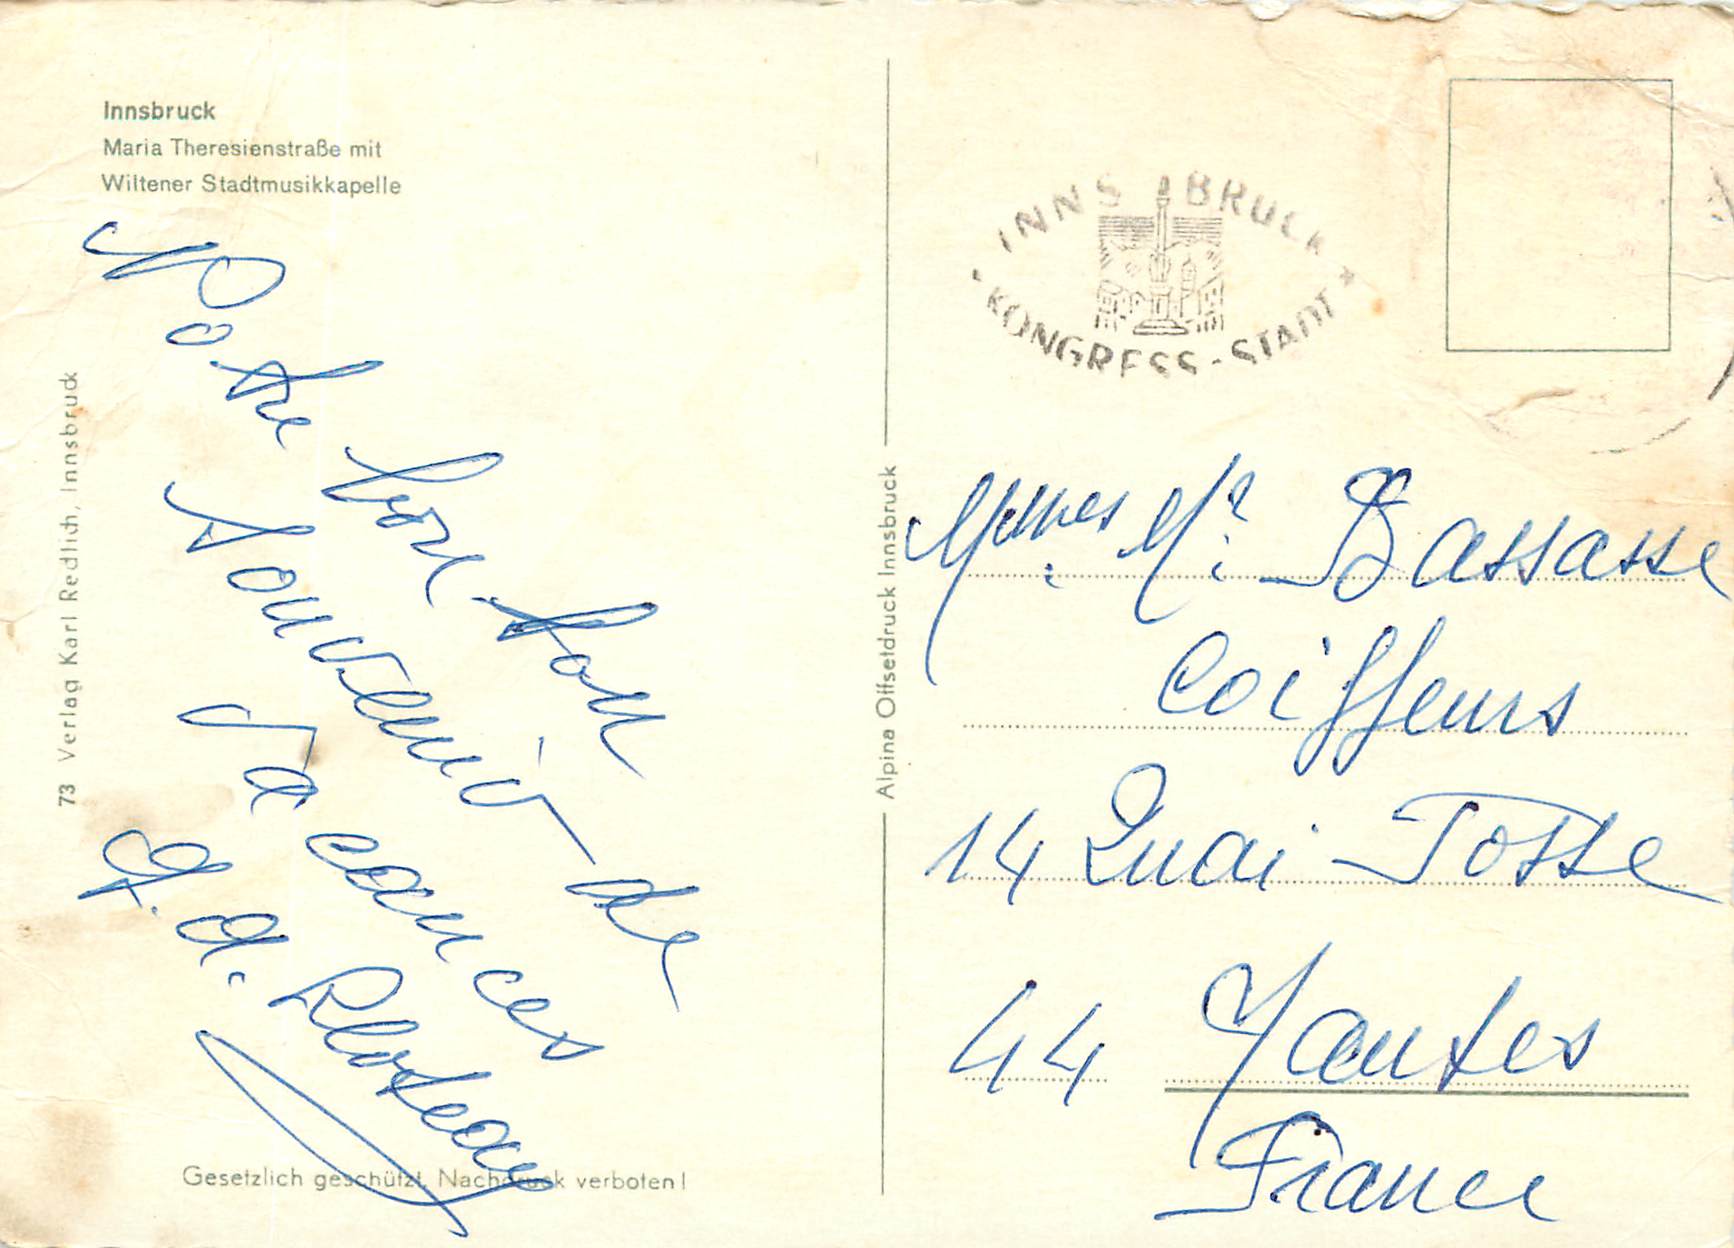 Innsbruck
Maria Theresienstraße mit
Wiltener Stadtmusikkapelle
Notre bon bon
souvenir de
vacances
73 Verlag Karl Redlich, Innsbruck
Gesetzlich geschützt. Nachdruck verboten!
Alpina Offsetdruck Innsbruck
INNSBRUCK
KONGRESS-STADT
Mmes Mr. Bassasse
Coiffeurs
14 Quai Tosse
44 Nantes
France